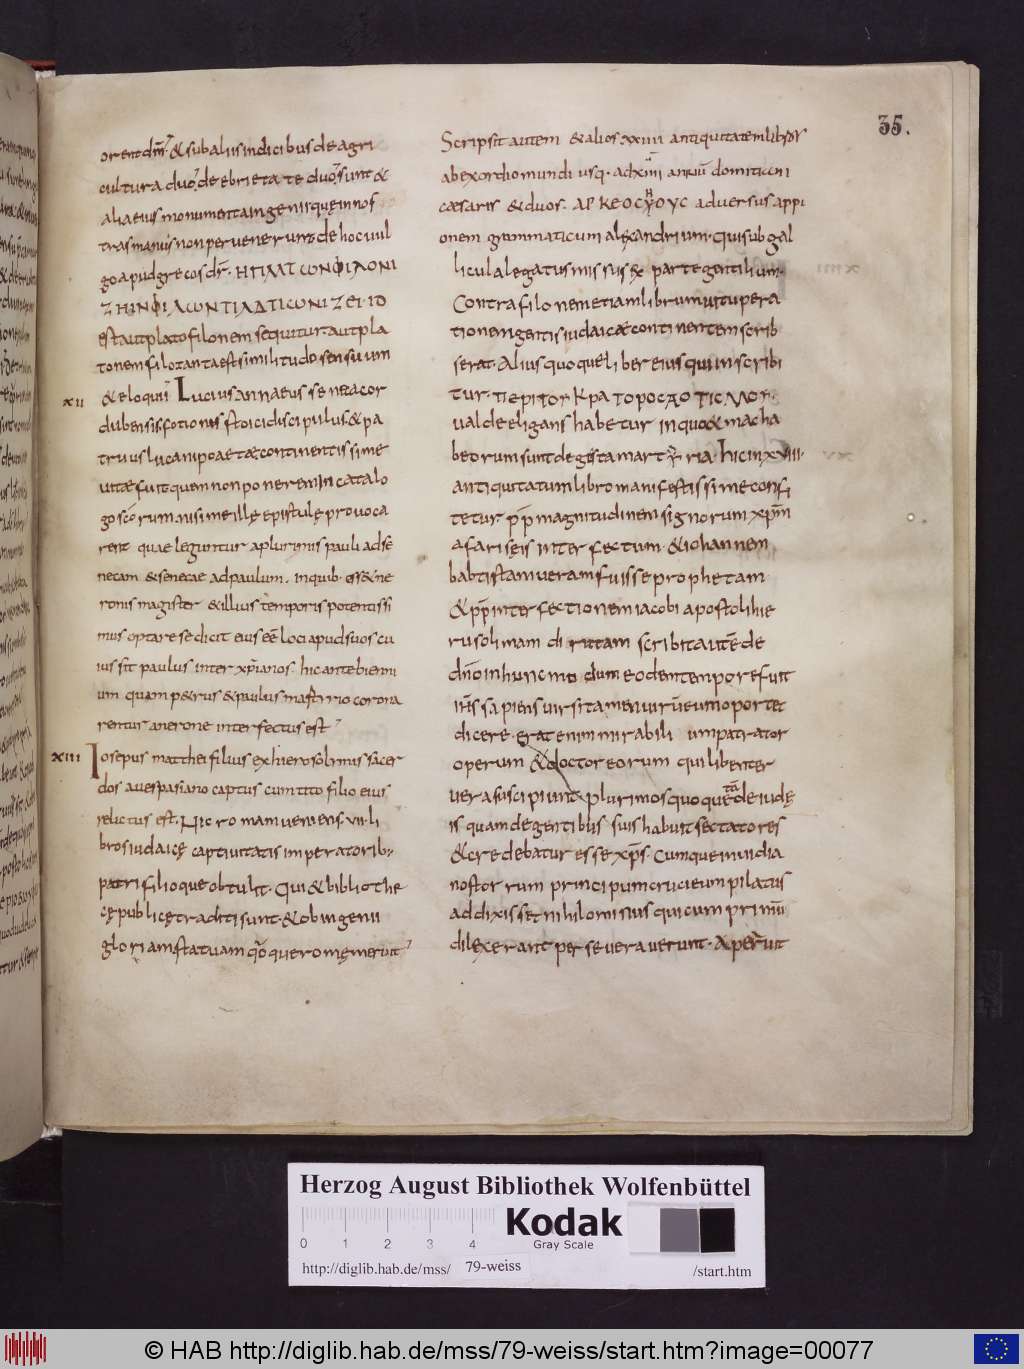 35.
orent dm̅. & sub aliis indicibus de agri
cultura duo. de ebrietate duo. sunt &
alia eius monumenta ingenii quę in nos
tras manus non pervenerunt de hoc vul
go apud grecos dr̅. Η ΠΛΑΤωΝ ΦΙΛΟΝΙ
ΖΗ ΙΝ ΦΙΛωΝ ΤΙΛΔΤΙϹωΝΙΖΕΙ· ID
est aut plato filonem sequitur. aut pla
tonem filo. tanta est similitudo sensuum
XII
& eloquii Lucius annaeus seneca cor
dubensis. fotionis stoici discipulus. & pa
truus lucani poaetae. continentissime
uitae fuit quem non ponerem in catalo
go scōrum. nisi me illę epistulę provoca
rent quae leguntur a plurimis pauli ad se
necam & senecae ad paulum. in quib· cum ess& ne
ronis magister & illius temporis potentissi
mus optare se dicit eius eē loci apud suos cu
ius sit paulus inter xp̅ianos. hic ante bienni
um quam p&rus & paulus martyrio corona
rentur a nerone interfectus est
XIII
Iosepus matthei filius ex hierosolimis sacer
dos a vespasiano captus cum tito filio eius
relictus est. Hic romam veniens. vii· li
bros iudaicę captiuitatis imperatorib;
patri filioque obtulit. Qui & bibliothe
cę publicę traditi sunt. & ob ingenii
gloriam statuam quoque romę meruit
Scripsit autem & alios xxiiii antiquitatem libros
ab exordio mundi usq· ad xiiii annū domitiani
caesaris & duos. ΑΡΚΕΟϹΥΟΥϹ adversus appi
onem grammaticum alexandrium. Qui sub gal
licula legatus missus ex parte gentilium
Contra filonem etiam librum uitupera
tionem gentis iudaicae continentem scrib
serat. Alius quoque liber eius qui inscribi
tur. ΠΕΡΙΤΟΡ ΚΡΑΤΟΡΟϹΛΟΤΙϹΜΟΥ.
ualde eligans habetur in quo & macha
beorum sunt degesta martyria. hic in xviii.
antiquitatum libro manifestissime confi
tetur. pp̅ magnitudinem signorum xp̅m
a fariseis interfectum. & iohannem
babtistam ueram fuisse prophetam
& pp̅ interfectionem iacobi apostoli hie
rusolimam dirutam scribit autē de
dn̅o in hunc modum eodem tempore fuit
ih̅s sapiens vir si tamen virū eum oportet
dicere. erat enim mirabilium patrator
operum & doctor eorum qui libenter
uera suscipiunt plurimos quoque tā de iudę
is quam de gentibus suis habuit sectatores
& credebatur esse xp̅s. Cumque inuidia
nostorum principum cruci eum pilatus
addixisset nihilominus qui eum primū
dilexerant perseveraverunt. Aperuit
Herzog August Bibliothek Wolfenbüttel
0 1 2 3 4
Kodak
Gray Scale
http://diglib.hab.de/mss/ 79-weiss /start.htm
© HAB http://diglib.hab.de/mss/79-weiss/start.htm?image=00077